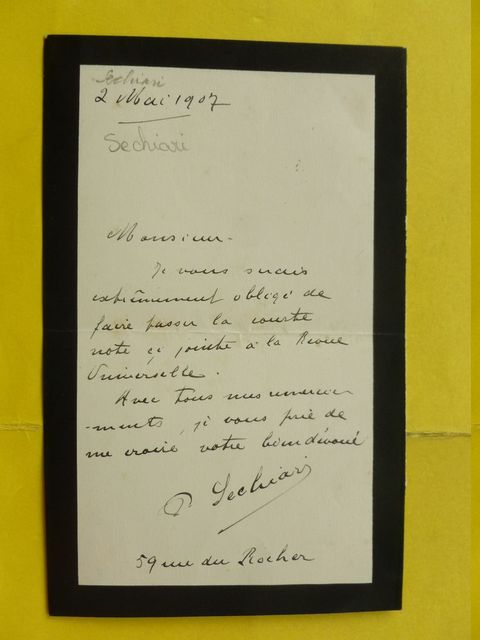 Sechiari
2 Mai 1907
Sechiari
Monsieur.
Je vous serais
extrêmement obligé de
faire passer la courte
note ci jointe à la Revue
Universelle.
Avec tous mes remercie
-ments, je vous prie de
me croire votre bien dévoué
P. Sechiari
59 rue du Rocher